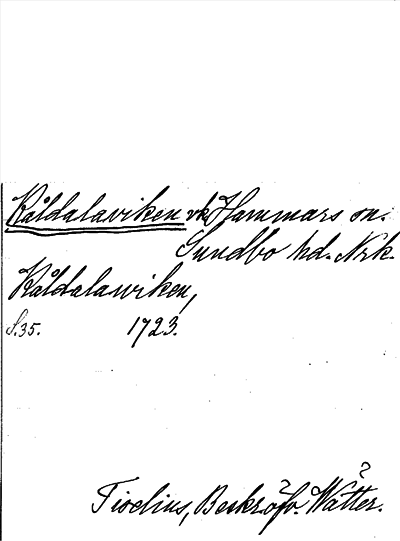 Kåldalaviken vk Hammars sn.
Sundbo hd. Nrk.
Kåldalawiken,
S.35. 1723.
Tiselius, Beskr. öfv. Wätter.